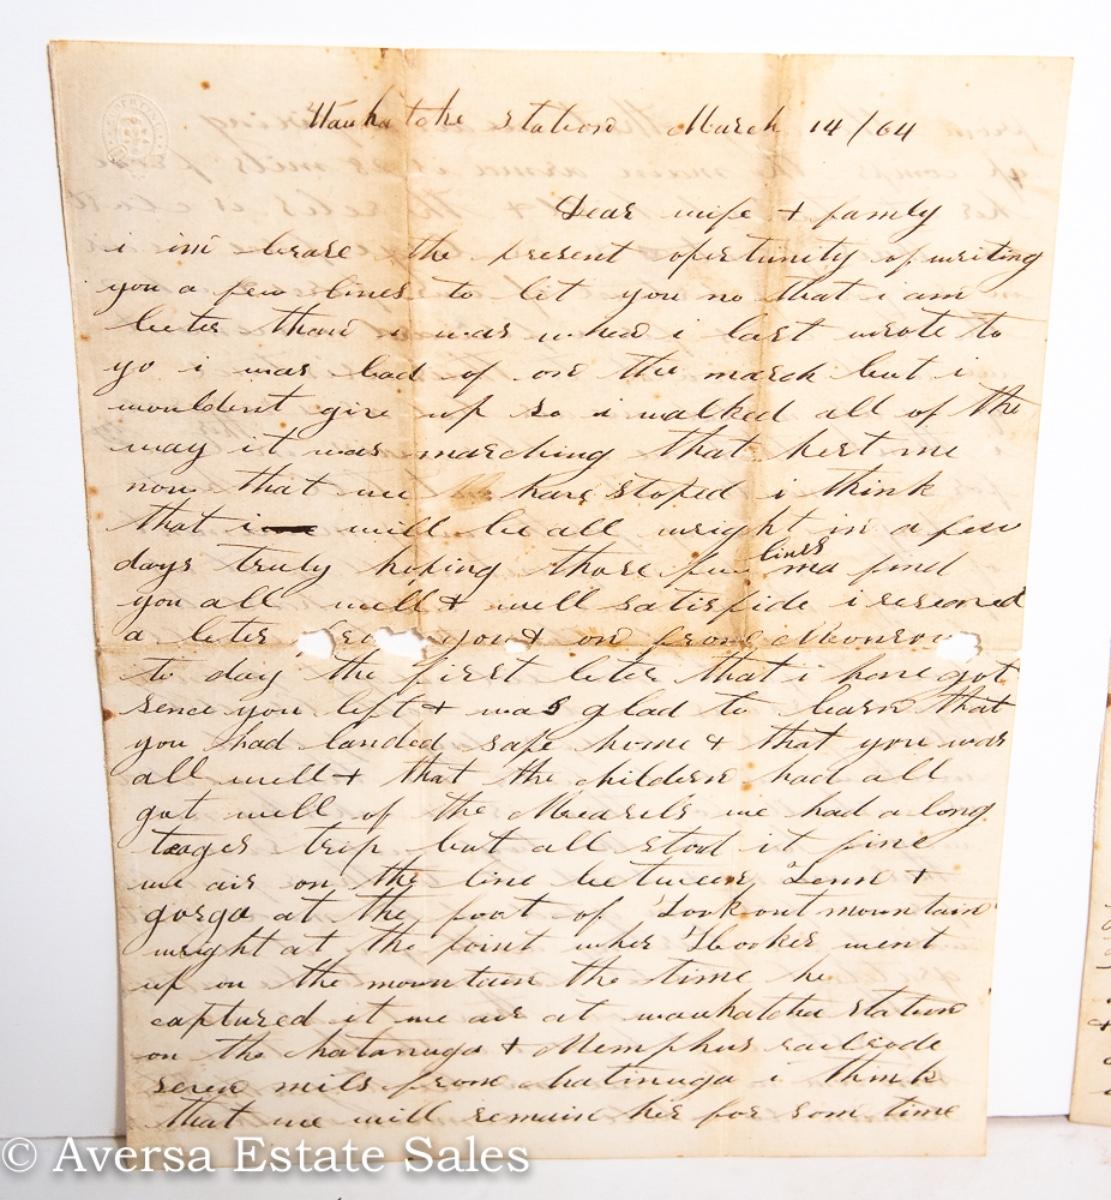 Wauhatche station March 14/64
Dear wife + family
i im brase the present opertunity of writing
you a few lines to let you no that i am
beter than i was when i last wrote to
yo i was bad of on the march but i
wouldent give up so i walked all of the
way it was marching that hert me
now that we have stoped i think
that i will be all wright in a few
days truly hoping those few lines ma find
you all well + well satisfide i received
a leter from you + on from Monrow
to day the first leter that i have got
sence you left + was glad to learn that
you had landed safe home + that you was
all well + that the children had all
got well of the Measels we had a long
teages trip but all stood it fine
we air on the line between Tenn +
gorga at the foot of Lookout mountain
wright at the point wher Hooker went
up on the mountain the time he
captured it we air at wauhatcha station
on the chatanuga + Memphus railrode
seven mils from chatinuga i think
that we will remain her for som time
© Aversa Estate Sales